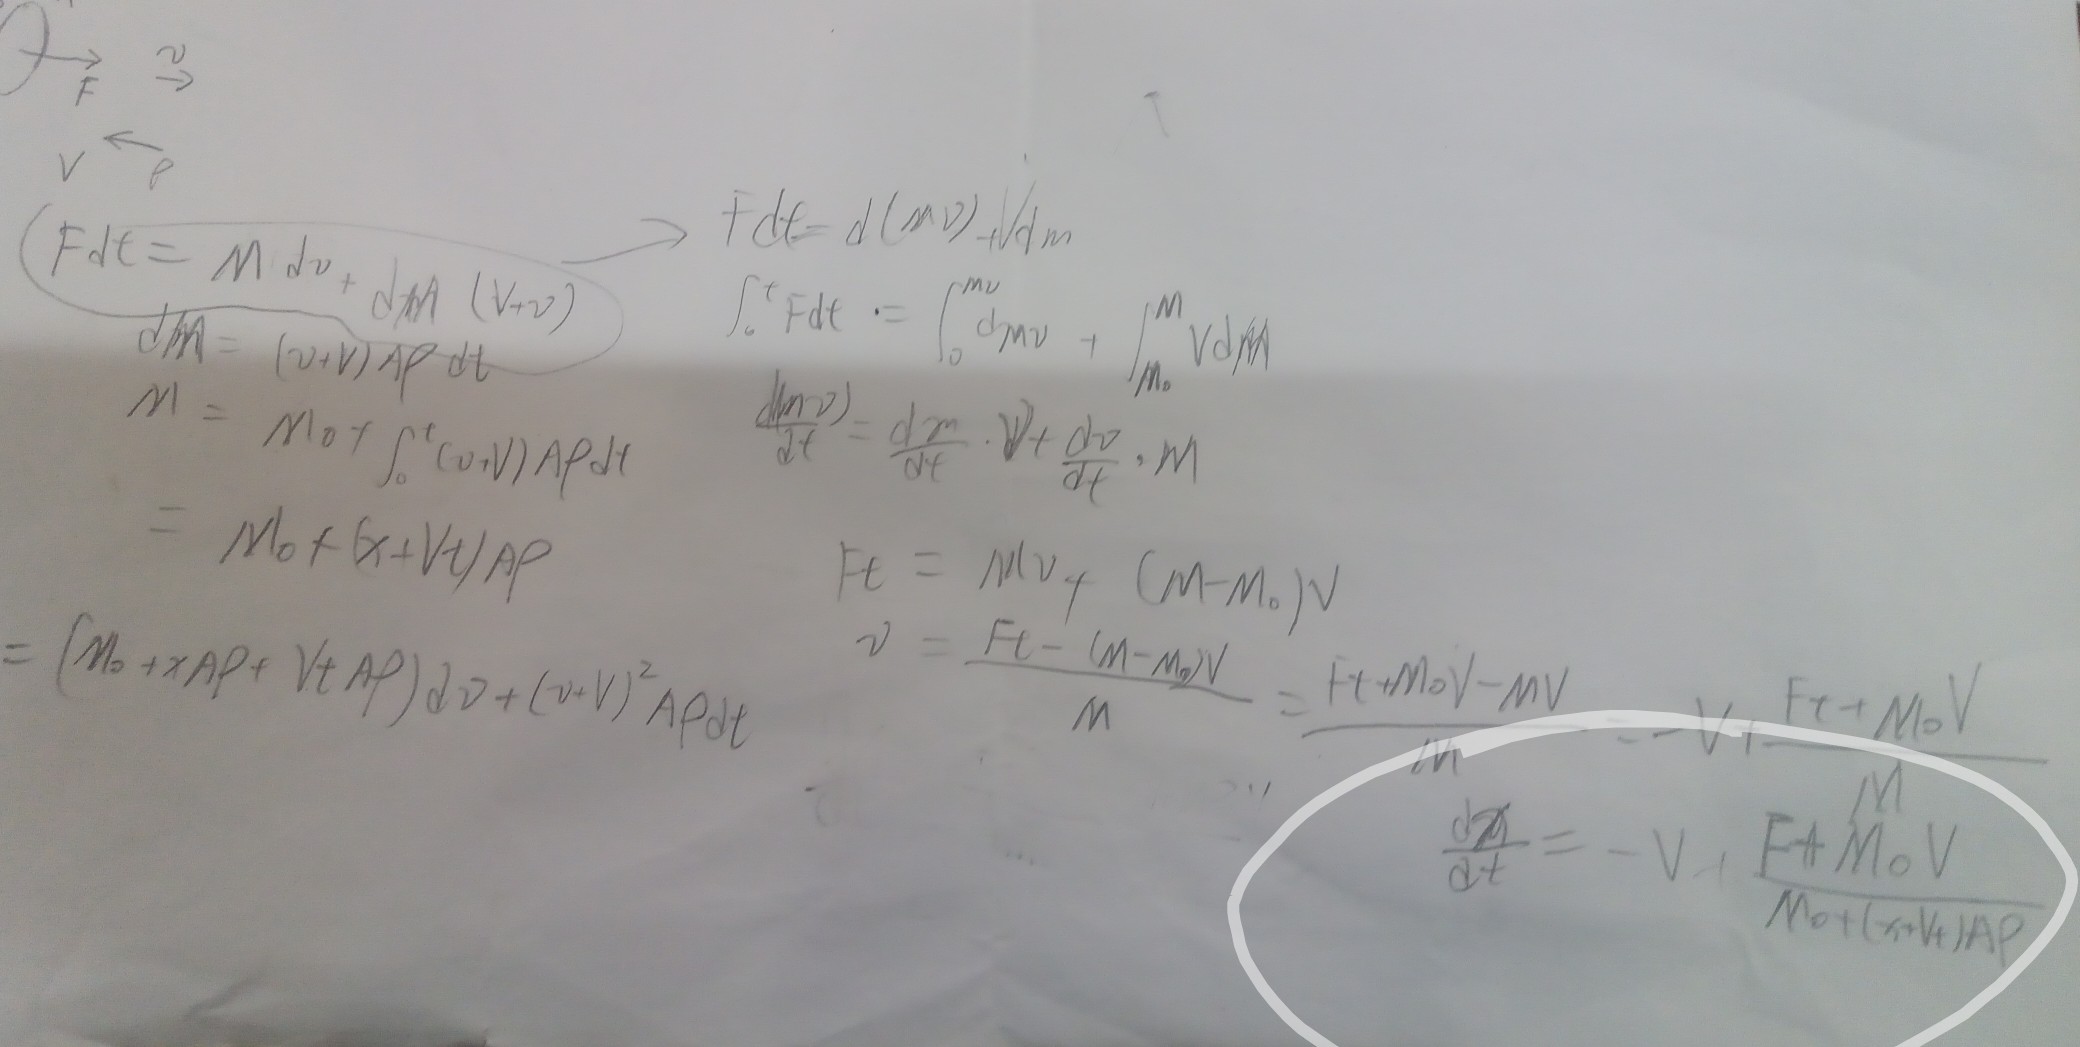 F v
V ρ
Fdt = M dv + dM (V+v)
dM = (v+V) Aρ dt
M = M₀ + ∫₀ᵗ (v+V) Aρdt
= M₀ + (x+Vt) Aρ
= (M₀ + xAρ + VtAρ) dv + (v+V)² Aρdt
Fdt = d(mv) + Vdm
∫₀ᵗ Fdt = ∫₀ᵐᵛ dmv + ∫_M₀^M VdM
d(mv)/dt = dm/dt · v + dv/dt · M
Ft = Mv + (M-M₀)V
v = (Ft - (M-M₀)V)/M = (Ft+M₀V-MV)/M = -V + (Ft+M₀V)/M
dx/dt = -V + (Ft+M₀V)/(M₀+(x+Vt)Aρ)